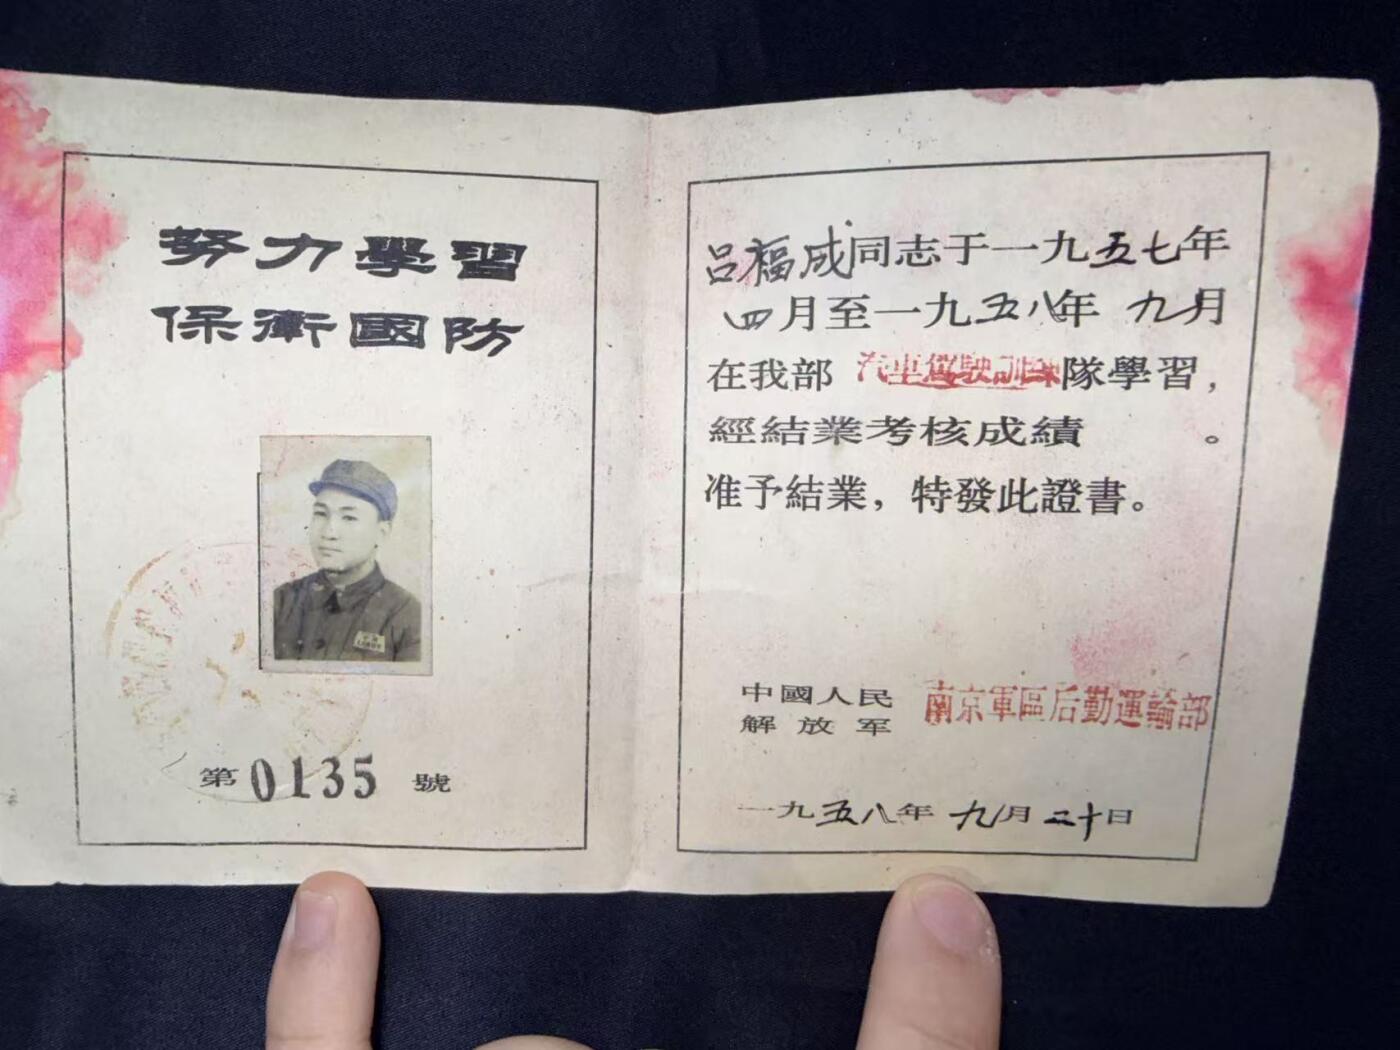 努力學習
保衛國防
第0135號
吕福成同志于一九五七年
四月至一九五八年九月
在我部汽車駕駛訓練隊學習，
經結業考核成績　　。
准予結業，特發此證書。
中國人民
解放军
南京軍區后勤運輸部
一九五八年九月二十日